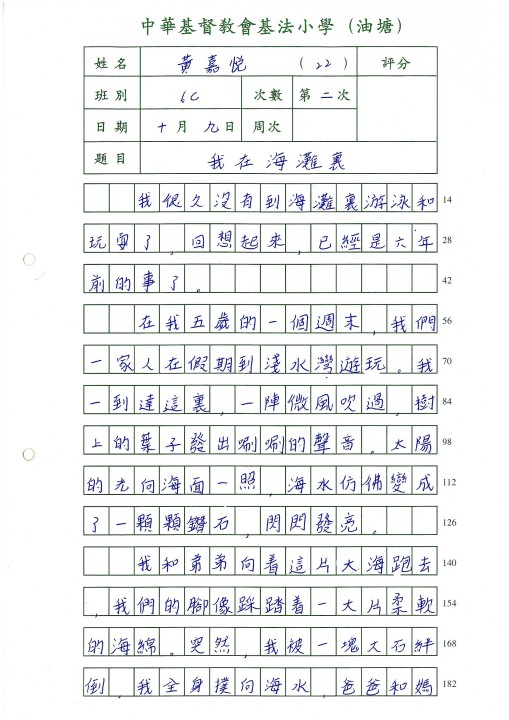 中華基督教會基法小學（油塘）
姓名 黃嘉悅 (22) 評分
班別 6C 次數 第二次
日期 十月九日 周次
題目 我在海灘裏
我很久沒有到海灘裏游泳和 14
玩耍了，回想起來，已經是六年 28
前的事了。 42
在我五歲的一個週末，我們 56
一家人在假期到淺水灣遊玩。我 70
一到達這裏，一陣微風吹過，樹 84
上的葉子發出唰唰的聲音。太陽 98
的光向海面一照，海水仿佛變成 112
了一顆顆鑽石，閃閃發亮。 126
我和弟弟向着這片大海跑去 140
，我們的腳像踩踏着一大片柔軟 154
的海綿。突然，我被一塊大石絆 168
倒，我全身撲向海水，爸爸和媽 182